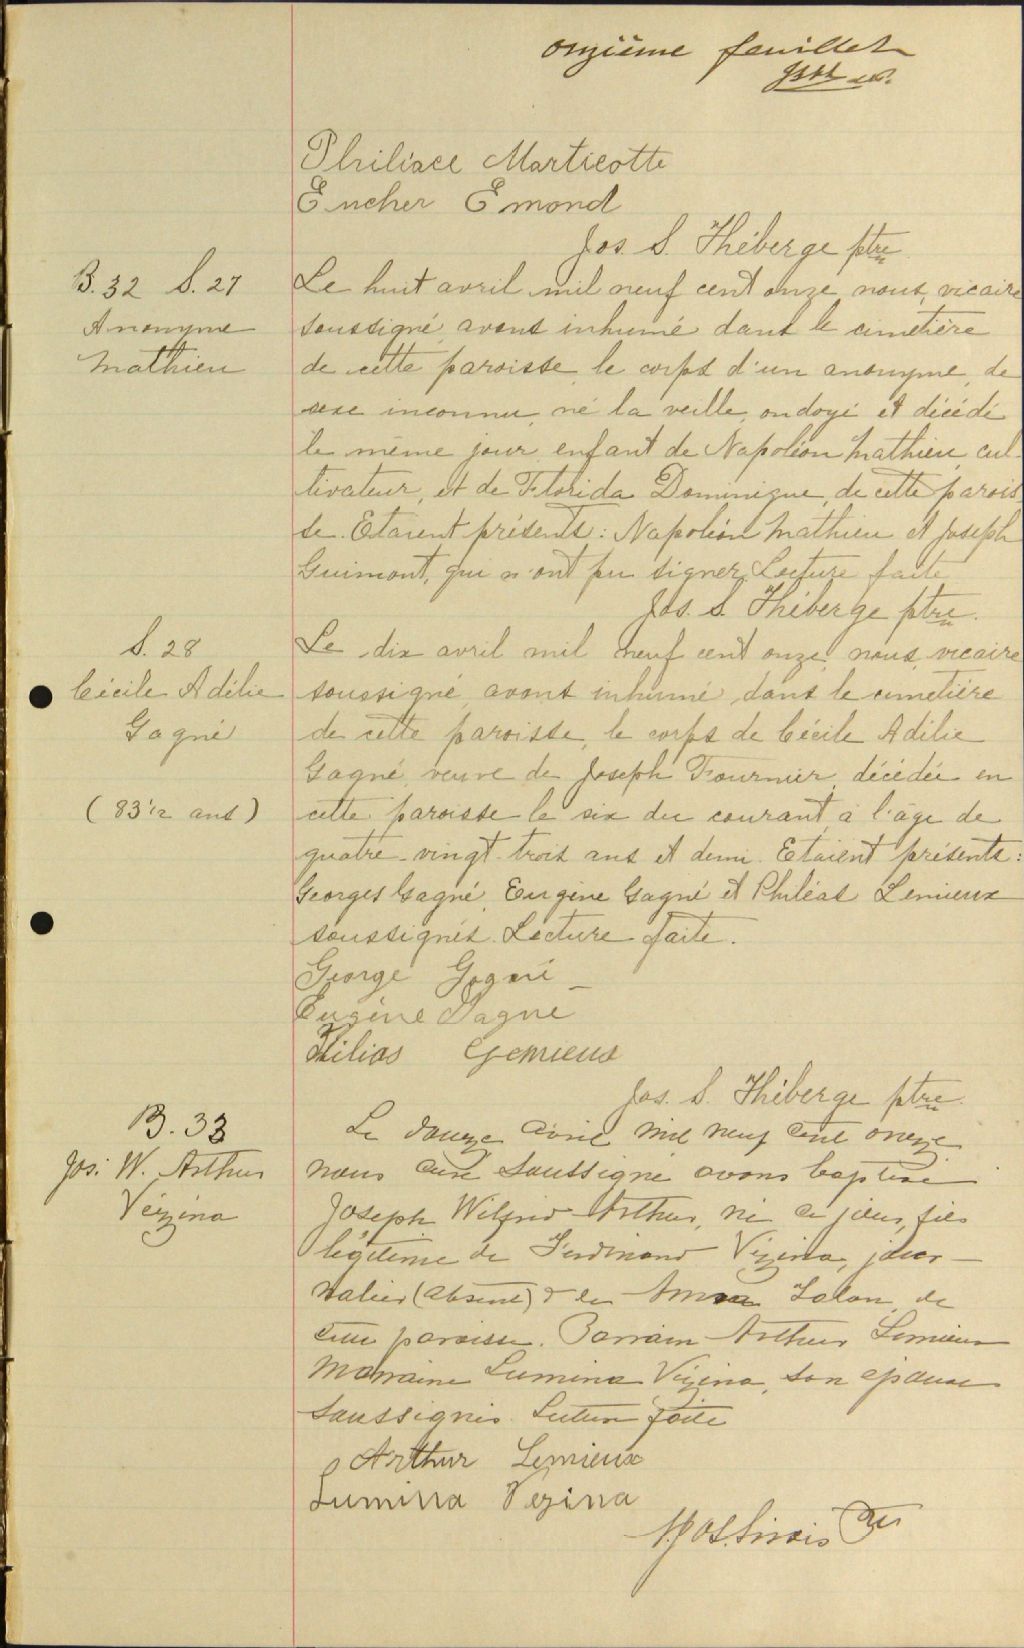 onzième feuillet
Philiace Marticotte
Eucher Emond
Jos. S. Théberge ptre
B. 32 S. 27
Anonyme
Mathieu
Le huit avril mil neuf cent onze nous, vicaire
soussigné, avons inhumé dans le cimetière
de cette paroisse, le corps d'un anonyme, de
sexe inconnu, né la veille, ondoyé et décédé
le même jour, enfant de Napoléon Mathieu, cul-
tivateur, et de Florida Dominique, de cette parois
se. Etaient présents: Napoléon Mathieu et Joseph
Guimont, qui n'ont pu signer. Lecture faite
Jos. S. Théberge ptre.
S. 28
Cécile Adélie
Gagné
(83 1/2 ans)
Le dix avril mil neuf cent onze, nous, vicaire
soussigné, avons inhumé dans le cimetière
de cette paroisse, le corps de Cécile Adélie
Gagné, veuve de Joseph Fournier, décédée en
cette paroisse le six du courant, a l'âge de
quatre-vingt-trois ans et demi. Etaient présents:
Georges Gagné, Eugène Gagné et Philéas Lemieux
soussignés. Lecture faite.
George Gagné
Eugène Gagné
Philias Lemieux
Jos. S. Théberge ptre.
B. 33
Jos. W. Arthur
Vézina
Le douze avril mil neuf cent onze
nous curé soussigné avons baptisé
Joseph Wilfrid Arthur, né ce jour, fils
légitime de Ferdinand Vézina, jour-
nalier (absent) & de Anna Talon, de
cette paroisse. Parrain Arthur Lemieux
Marraine Lumina Vézina, son épouse
soussignés. Lecture faite
Arthur Lemieux
Lumina Vezina